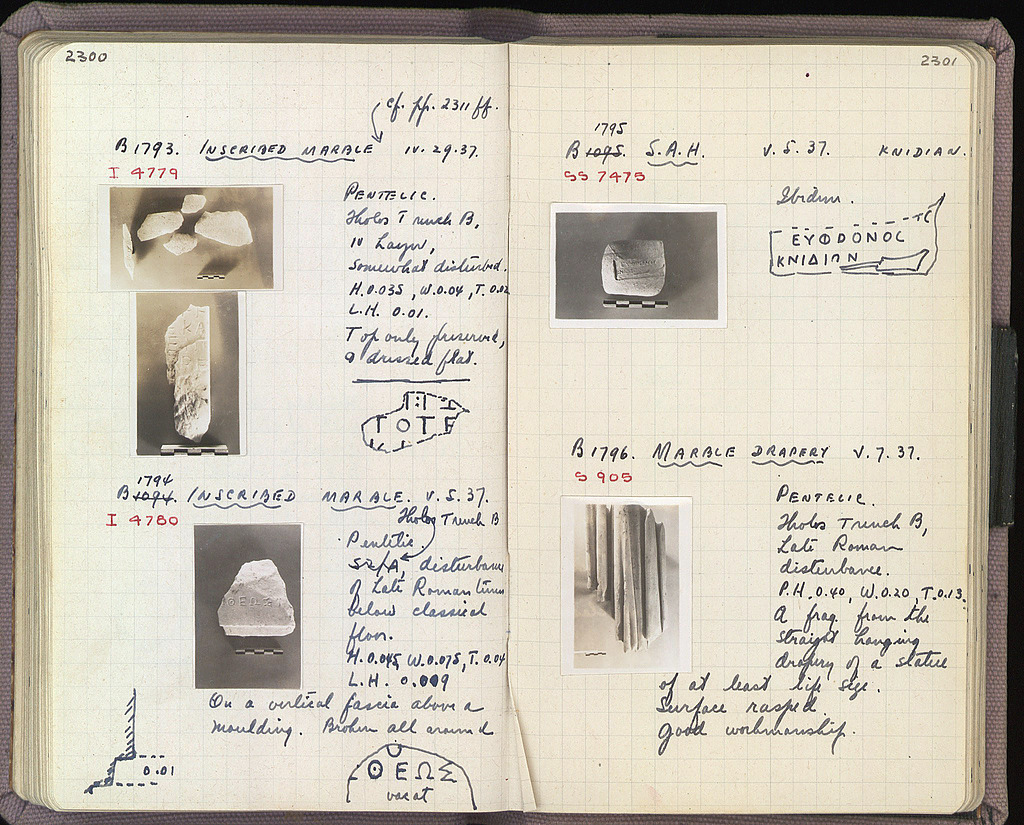 2300
cf. pp. 2311 ff.
B 1793. INSCRIBED MARBLE IV. 29. 37.
I 4779
PENTELIC.
Tholos Trench B,
IV Layer,
Somewhat disturbed.
H. 0.035, W. 0.04, T. 0.02
L.H. 0.01.
Top only preserved,
& dressed flat.
TOTE
1794
B 1094. INSCRIBED MARBLE. V. 5. 37.
I 4780
Tholos Trench B
Pentelic.
disturbance
of Late Roman times
below classical
floor.
H. 0.045, W. 0.075, T. 0.04
L.H. 0.009
On a vertical fascia above a
moulding. Broken all around
0.01
ΘΕΩΣ
vacat
2301
1795
B 1095. S.A.H. V. 5. 37. KNIDIAN.
SS 7475
Ibidem.
ΕΥΦΟΝΟC
ΚΝΙΔΙΩΝ
B 1796. MARBLE DRAPERY V. 7. 37.
S 905
PENTELIC.
Tholos Trench B,
Late Roman
disturbance.
P.H. 0.40, W. 0.20, T. 0.13.
A frag. from the
straight hanging
drapery of a statue
of at least life size.
Surface rasped.
Good workmanship.